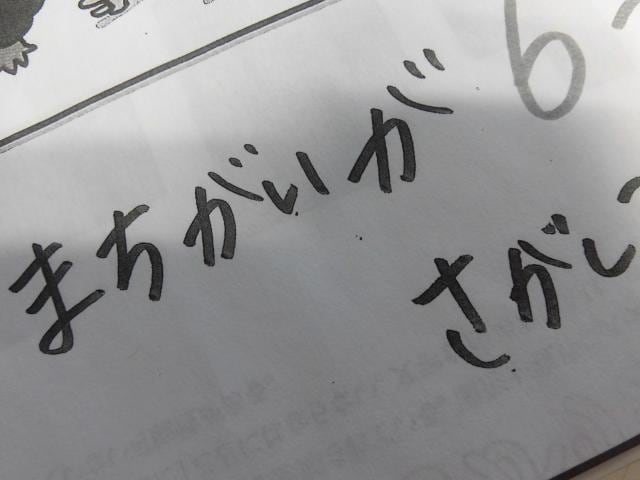 まちがいが
6
さがし